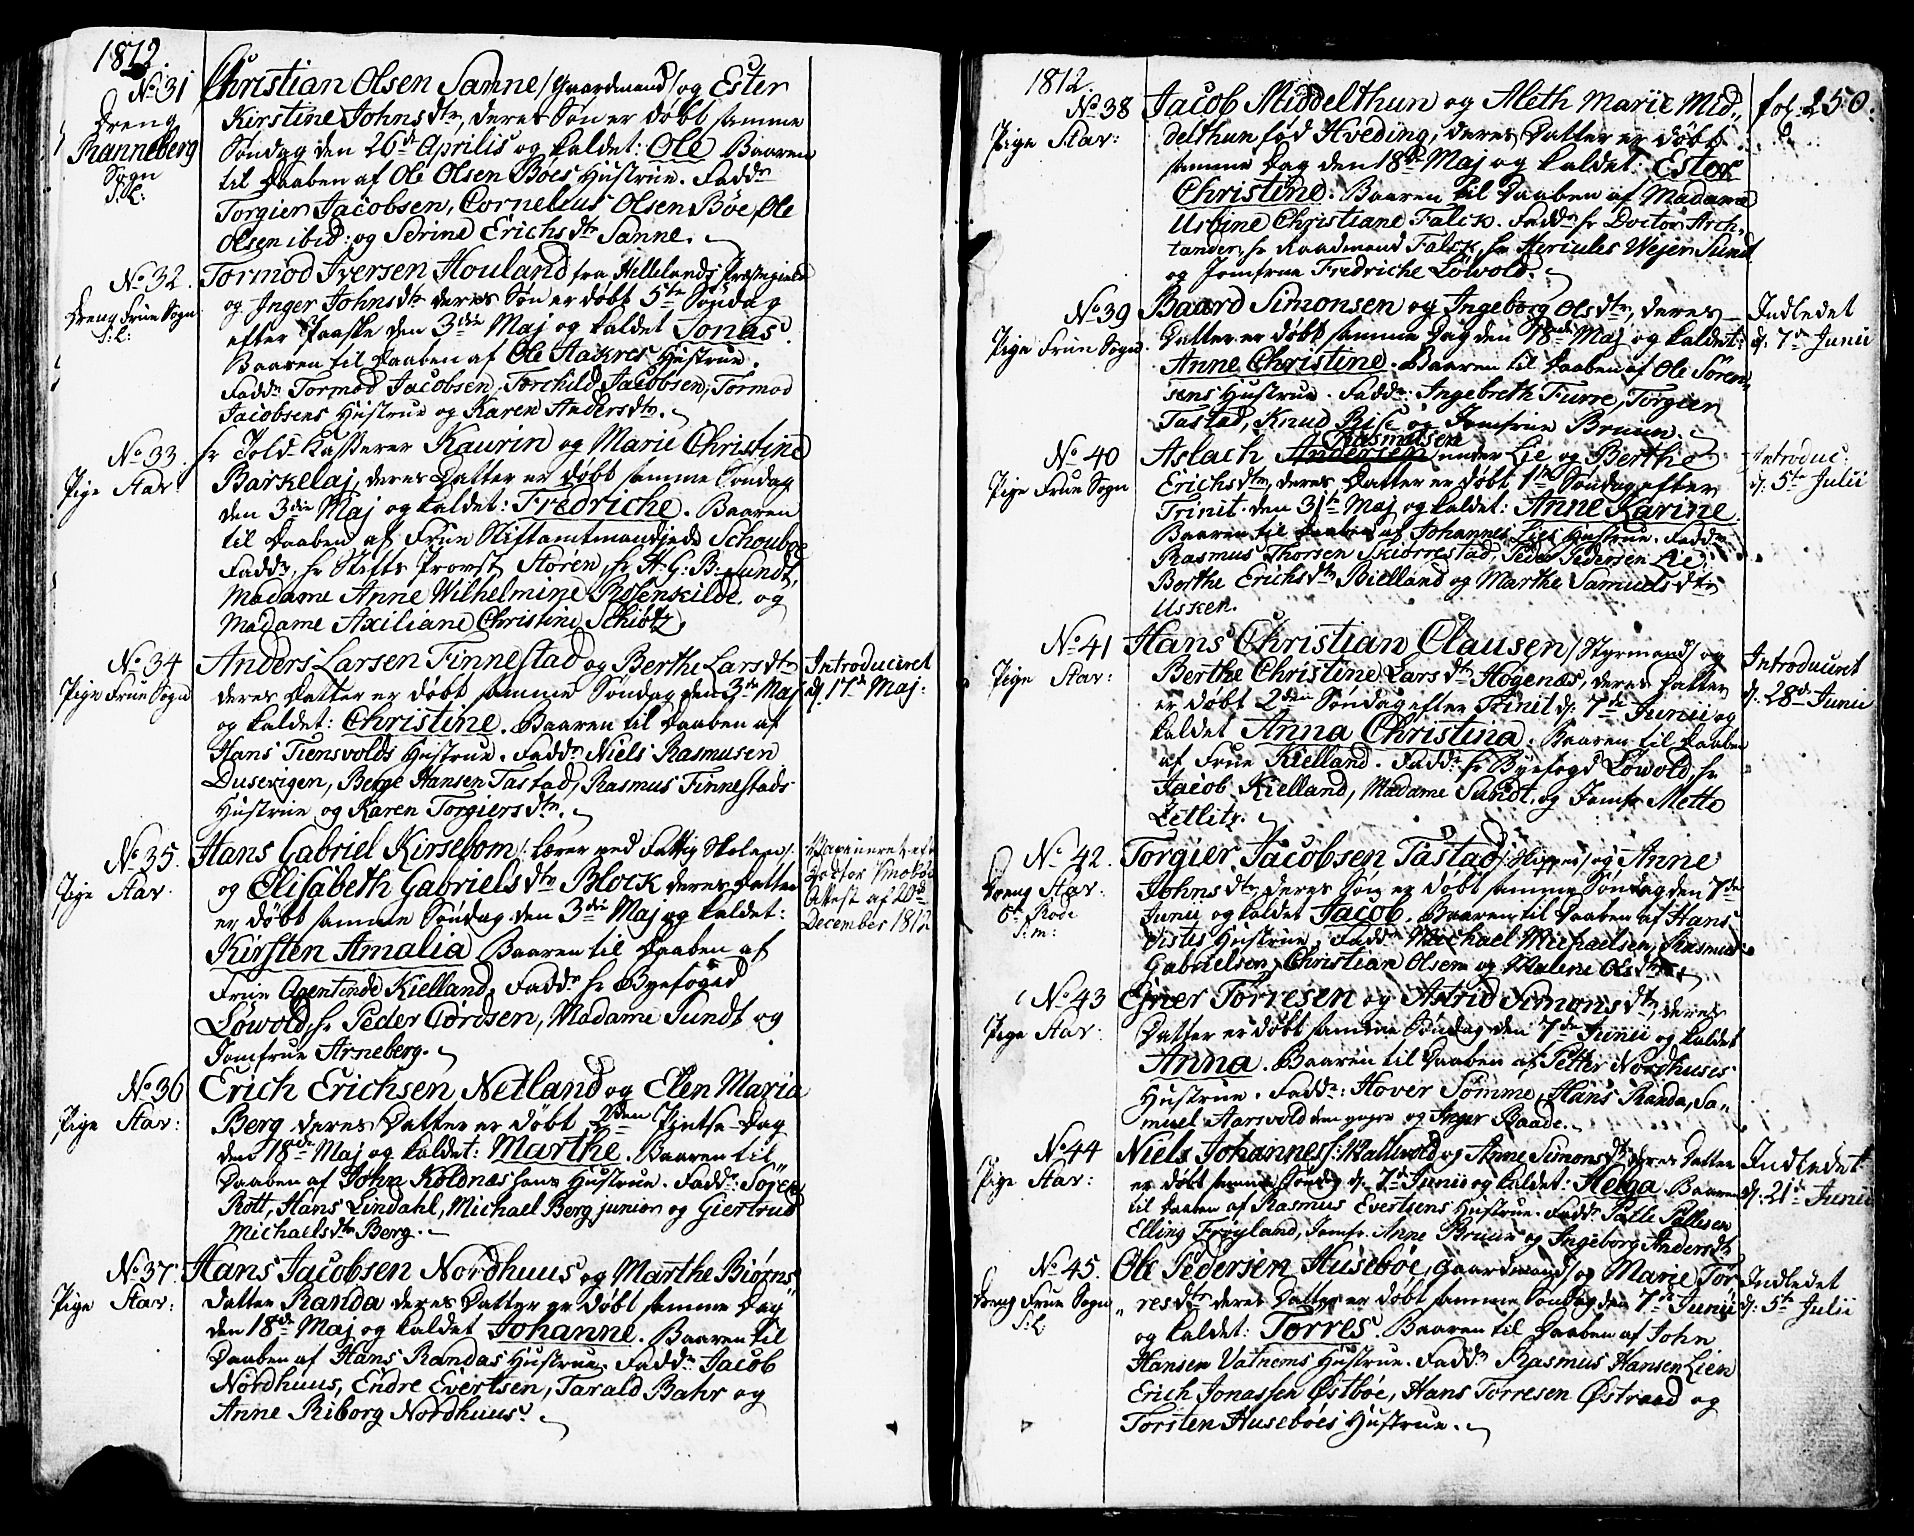 1812.
No 31
Dreng
Ranneberg
Sogn
S: L:
Christian Olsen Sanne /Gaardmand/ og Ester
Kirstine Johnsdtr, deres Søn er døbt samme
Søndag den 26de Aprilis og kaldet: Ole Baaren
til Daaben af Ole Olsen Bøes Hustrue. Faddr
Torgier Jacobsen, Cornelius Olsen Bøe, Ole
Olsen ibid: og Serine Erichsdtr Sanne.
No 32.
Dreng Frue Sogn
S: L:
Tormod Iversen Houland fra Hellelands Præstegield
og Inger Johnsdtr deres Søn er døbt 5te Søndag
efter Paaske den 3die Maj og kaldet Jonas.
Baaren til Daaben af Ole Aakres Hustrue.
Faddr Tormod Jacobsen, Torchild Jacobsen, Tormod
Jacobsens Hustrue og Karen Andersdtr.
No 33.
Pige Stav:
Hr Told-Kasserer Kaurin og Marie Christine
Barkelaj, deres Datter er døbt samme Søndag
den 3die Maj og kaldet: Fredriche. Baaren
til Daaben af Frue Stiftamtmandinde Schouboe
Faddr, Hr Stifts Provst Støren, Hr H: G: B: Sundt,
Madame Anne Wilhelmine Rosenkilde og
Madame Axiliane Christine Schiøtz
No 34
Pige Frue Sogn
Anders Larsen Finnestad og Berthe Larsdtr
deres Datter er døbt samme Søndag den 3die Maj
og kaldet: Christine. Baaren til Daaben af
Hans Tiensvolds Hustrue. Faddr Niels Rasmusen
Dusevigen, Berge Hansen Tastad, Rasmus Finnestads
Hustrue og Karen Torgiersdtr.
Introduceret
d. 17de Maj:
No 35.
Pige Stav.
Hans Gabriel Kirsebom /: Lærer ved Fattig Skolen:/
og Elisabeth Gabrielsdtr Block deres Datter
er døbt samme Søndag den 3die Maj og kaldet:
Kirsten Amalia Baaren til Daaben af
Frue Agentinde Kielland. Faddr Hr Byefoged
Løwold, Hr Peder Cordsen, Madame Sundt og
Jomfrue Arneberg.
Vaccineret efter
Doctor
Attest af 20de
December 1812
No 36
Pige Stav:
Erich Erichsen Netland og Elen Maria
Berg deres Datter er døbt 2den Pintse-Dag
den 18de Maj og kaldet: Marthe. Baaren til
Daaben af John Koldnas Hustrue. Faddr: Søren
Rott, Hans Lindahl, Michael Berg junior og Giertrud
Michaelsdtr Berg.
No 37.
Pige Stav:
Hans Jacobsen Nordhuus og Marthe Biørns
Datter Randa deres Datter er døbt samme Dag
den 18de Maj og kaldet Johanne. Baaren til
Daaben af Hans Randas Hustrue. Faddr: Jacob
Nordhuus, Endre Evertsen, Tarald Bahr og
Anne Riborg Nordhuus.
1812.
fol. 250.
No 38
Pige Stav:
Jacob Middelthun og Aleth Marie Mid-
delthun fød Hveding, deres Datter er døbt
samme Dag den 18de Maj og kaldet: Ester
Christine. Baaren til Daaben af Madame
Usbine Christiane Falck. Faddr Hr Doctor Arch-
tander, Hr Raadmand Falck, Hr Hercules Wejer Sundt
og Jomfrue Fredriche Løwold.
No 39
Pige Frue Sogn
Baard Simonsen og Ingeborg Olsdtr, deres
Datter er døbt samme Dag den 18de Maj og kaldet:
Anne Christine. Baaren til Daaben af Ole Sören-
sens Hustrue. Faddr: Ingebreth Furre, Torgier
Tastad, Knud Rise og Jomfrue Bruun.
Indledet
d. 7de Junii
No 40
Pige Frue Sogn
Rasmusen
Aslach Andersen under Lie og Berthe
Erichsdtr, deres Datter er døbt 1ste Søndag efter
Trinit. den 31te Maj og kaldet: Anne Karine
Baaren til Daaben af Johannes Lies Hustrue. Faddr
Rasmus Thorsen Skiørrestad, Peder Pedersen Lie,
Berthe Erichsdtr Bielland og Marthe Samuelsdtr
Usken.
Introduc:
d. 5te Julii
No 41
Pige Stav:
Hans Christian Clausen /Styrmand/ og
Berthe Christine Larsdtr Høgenæs, deres Datter
er døbt 2den Søndag efter Trinit d: 7de Junii og
kaldet Anna Christina. Baaren til Daaben
af Frue Kielland. Faddr Hr Byefogd Løwold, Hr
Jacob Kielland, Madame Sundt, og Jomfr Mette
Zetlitz.
Introduceret
d. 28de Junii
No 42.
Dreng Stav:
6te Rode
S: m:
Torgier Jacobsen Tastad /: Skipper:/ og Anne
Johnsdtr, deres Søn er døbt samme Søndag den 7de
Junii og kaldet Jacob. Baaren til Daaben af Hans
Hustrue. Faddr Michael Michaelsen, Rasmus
Gabrielsen, Christian Olsen og Malene Olsdtr.
No 43
Pige Stav:
Ejner Torresen og Astrid Simonsdtr, deres
Datter er døbt samme Søndag den 7de Junii og kaldet
Anna. Baaren til Daaben af Petter Nordhuses
Hustrue. Faddr: Hover Sømme, Hans Randa, Sa-
muel Aarsvold den yngre og Inger Baade.
No 44
Pige Stav:
Niels Johannesf: Mallvold og Anne Simonsdtr deres Datter
er døbt samme Søndag d: 7de Junii og kaldet: Helga. Baaren
til Daaben af Rasmus Evertsens Hustrue. Faddr Palle Pallesen
Elling Frøyland, Jomfr. Anne Bruun og Ingeborg Andersdtr
Indledet
d. 21de Junii
No 45.
Dreng Frue Sogn
S: L:
Ole Pedersen Husebøe, Gaardmand/ og Marie Tor-
resdtr deres Datter er døbt samme Søndag den 7de Junii
og kaldet: Torres. Baaren til Daaben af John
Hansen Vatnems Hustrue. Faddr Rasmus Hansen Lien
Erich Jonassen Østbøe, Hans Torresen Østraad og
Torsten Husebøes Hustrue.
Indledet
d. 5te Julii